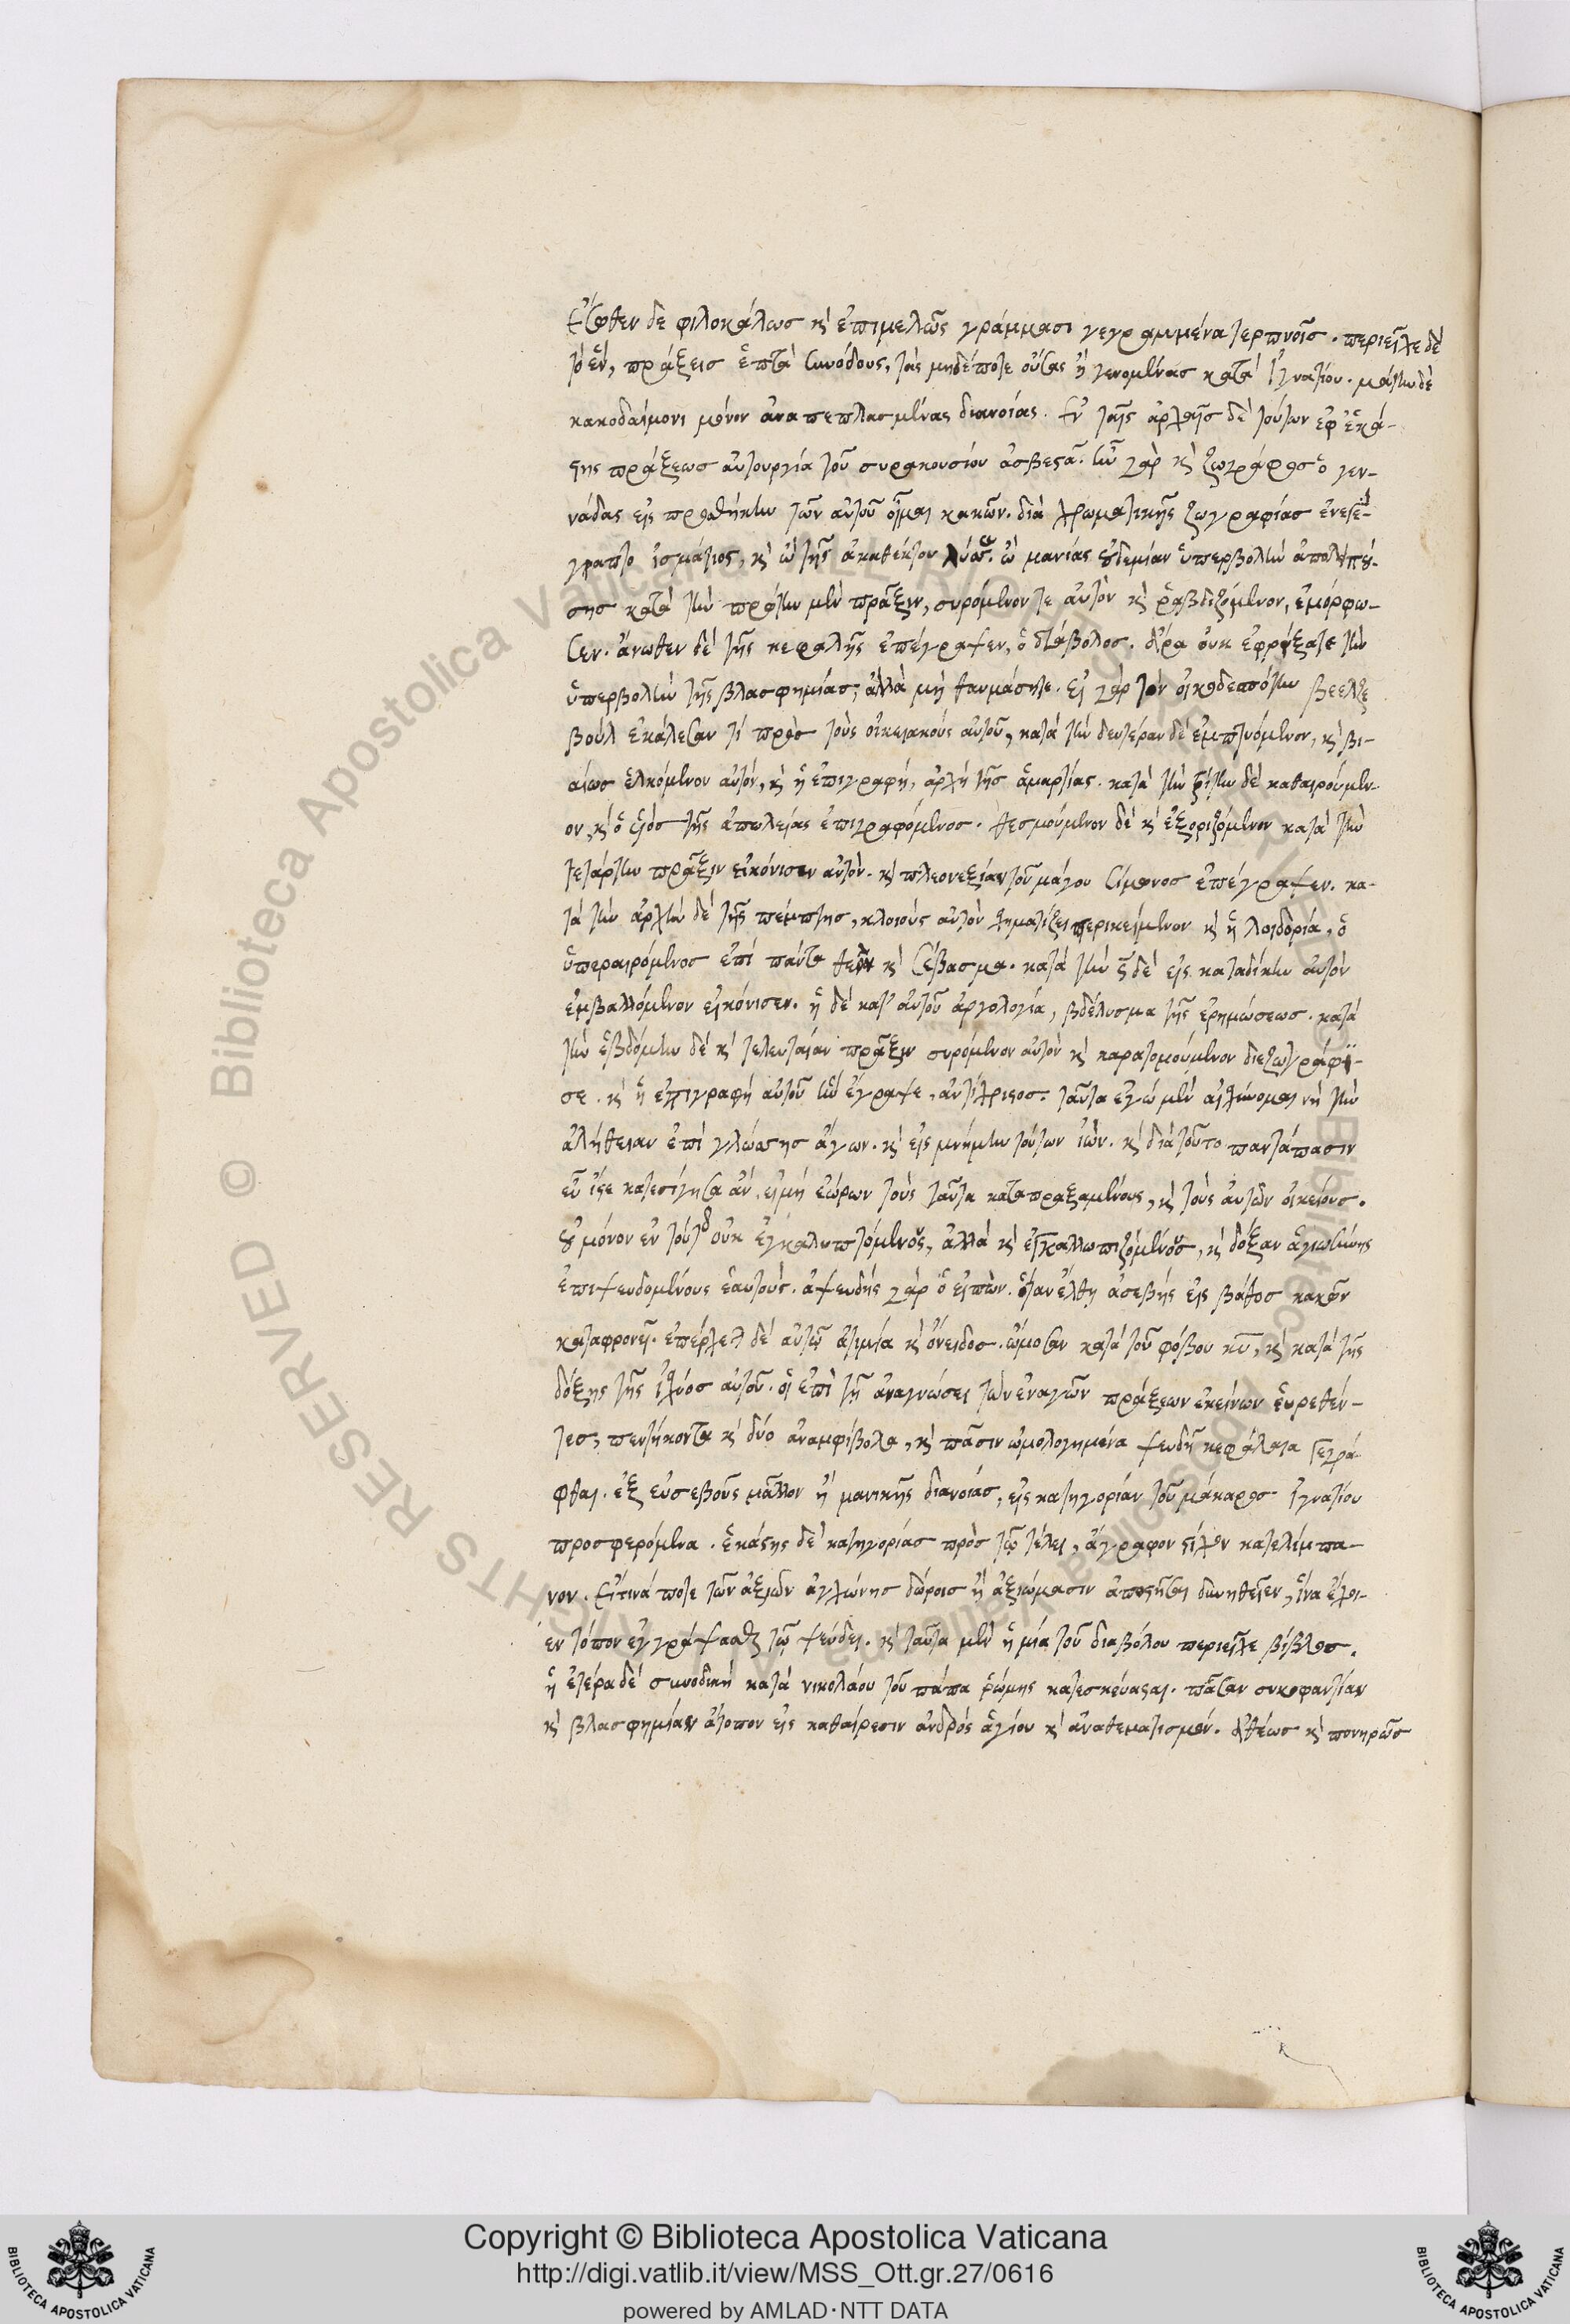 ἔσωθεν δὲ φιλοκάλως κ ἐπιμελῶς γράμμασι γεγραμμένα τερπνοῖς. περιεῖχε δὲ
τὸ ἓν, πράξεις ἑπτὰ συνόδους, τὰς μηδέποτε οὔσας ἢ γενομένας κατὰ Ἰγνατίου. μάτην δὲ
κακοδαίμονι μόνον ἀναπεπλασμένας διανοίας. Ἐν ταῖς ἀρχαῖς δὲ τούτων ἐφ ἑκά-
στης πράξεως αὐτουργία τοῦ συρακουσίου ἀσβεστᾶ. ἦν γὰρ κ ζωγράφος ὁ γεν-
νάδας εἰς προσθήκην τῶν αὐτοῦ οἶμαι κακῶν. διὰ χρωματικῆς ζωγραφίας ἐνετέ-
γραπτο ἰγνάτιος, κ ὢ τῆς ἀκαθέκτου λύσσης. ὢ μανίας οὐδεμίαν ὑπερβολὴν ἀπολιπού-
σης κατὰ τὴν πρώτην μὲν πρᾶξιν, συρόμενον τε αὐτὸν κ ῥαβδιζόμενον, ἐμόρφω-
σεν. ἄνωθεν δὲ τῆς κεφαλῆς ἐπέγραψεν, ὁ διάβολος. ἆρα οὐκ ἐφρίξατε τὴν
ὑπερβολὴν τῆς βλασφημίας; ἀλλὰ μὴ θαυμάσητε. εἰ γὰρ τὸν οἰκοδεσπότην βεελζε
βοὺλ ἐκάλεσαν τί πρὸς τοὺς οἰκειακοὺς αὐτοῦ, κατὰ τὴν δευτέραν δὲ ἐμπτυόμενον, κ βι-
αίως ἑλκόμενον αὐτόν, κ ἡ ἐπιγραφή, ἀρχὴ τῆς ἁμαρτίας. κατὰ τὴν τρίτην δὲ καθαιρούμεν-
ον, κ ὁ υἱὸς τῆς ἀπωλείας ἐπιγραφόμενος. δεσμούμενον δὲ κ ἐξοριζόμενον κατὰ τὴν
τετάρτην πρᾶξιν εἰκόνισεν αὐτόν. κ πλεονεξίαν τοῦ μάγου σίμωνος ἐπέγραψεν. κα-
τὰ τὴν ἀρχὴν δὲ τῆς πέμπτης, κλοιοὺς αὐτὸν σχηματίζει περικείμενον κ ἡ λοιδορία, ὁ
ὑπεραιρόμενος ἐπὶ πάντα θεὸν κ σέβασμα. κατὰ τὴν ς δὲ εἰς καταδίκην αὐτὸν
ἐμβαλλόμενον εἰκόνισεν. ἡ δὲ κατ' αὐτοῦ ἀργολογία, βδέλυγμα τῆς ἐρημώσεως. κατὰ
τὴν ἑβδόμην δὲ κ τελευταίαν πρᾶξιν συρόμενον αὐτὸν κ καρατομούμενον διεζωγράφη-
σε. κ ἡ ἐπιγραφὴ αὐτοῦ ἣν ἔγραψε, ἀντίχριστος. ταῦτα ἐγὼ μὲν αἰσχύνομαι νὴ τὴν
ἀλήθειαν ἐπὶ γλώσσης ἄγων. κ εἰς μνήμην τούτων ἰών. κ διὰ τοῦτο παντάπασιν
εὖ ἴστε κατεσίγησα ἄν, εἰ μὴ ἑώρων τοὺς ταῦτα καταπραξαμένους, κ τοὺς αὐτῶν οἰκείους.
οὐ μόνον ἐν τούτοις οὐκ ἐγκαλυπτόμενους, ἀλλὰ κ ἐγκαλλωπιζόμενους, κ δόξαν ἁγιωσύνης
ἐπιψευδομένους ἑαυτοὺς. ἀψευδὴς γὰρ ὁ εἰπὼν. ὅταν ἔλθη ἀσεβὴς εἰς βάθος κακῶν
καταφρονεῖ. ἐπέρχεται δὲ αὐτῷ ἀτιμία κ ὄνειδος. ὤμοσαν κατὰ τοῦ φόβου κυ, κ κατὰ τῆς
δόξης τῆς ἰσχύος αὐτοῦ. οἱ ἐπὶ τῇ ἀναγνώσει τῶν ἐναγῶν πράξεων ἐκείνων εὑρεθέν-
τες, πεντήκοντα κ δύο ἀναμφίβολα, κ πᾶσιν ὡμολογημένα ψευδῆ κεφάλαια γεγρά
φθαι. ἐξ εὐσεβοῦς μᾶλλον ἢ μανικῆς διανοίας, εἰς κατηγορίαν τοῦ μάκαρος Ἰγνατίου
προσφερόμενα. ἑκάστης δὲ κατηγορίας πρὸς τῷ τέλει, ἄγραφον στίχον κατελίμπα-
νον. εἴ τινά ποτε τῶν ἀξιῶν ἀγχώνης δώροις ἢ ἀξιώμασιν ἀποστῆσαι δυνηθεῖεν, ἵνα ἔχοι-
εν τόπον ἐγγράψασθαι τῷ ψεύδει. κ ταῦτα μὲν ἡ μία τοῦ διαβόλου περιεῖχε βίβλος.
ἡ ἑτέρα δὲ συνοδικὴ κατὰ νικολάου τοῦ πάπα ῥώμης κατεσκεύασται. πᾶσαν συκοφαντίαν
κ βλασφημίαν ἄτοπον εἰς καθαίρεσιν ἀνδρὸς ἁγίου κ ἀναθεματισμόν. ἀθέως κ πονηρῶς
© Biblioteca Apostolica Vaticana ALL RIGHTS RESERVED
Copyright © Biblioteca Apostolica Vaticana
http://digi.vatlib.it/view/MSS_Ott.gr.27/0616
powered by AMLAD·NTT DATA
BIBLIOTECA APOSTOLICA VATICANA
BIBLIOTECA APOSTOLICA VATICANA